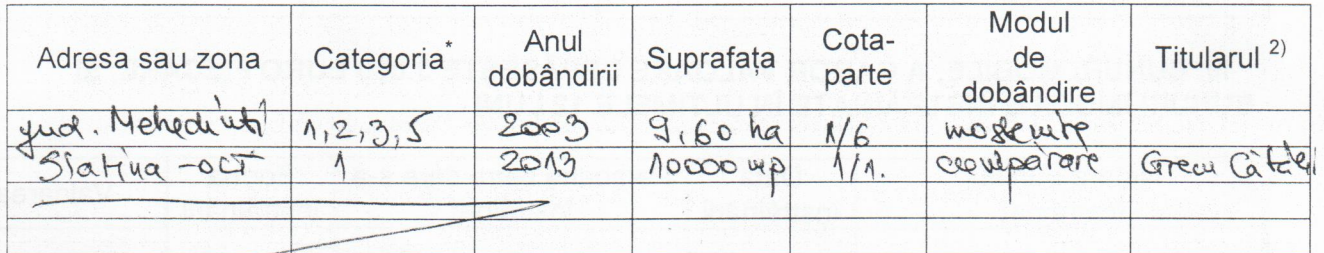 Adresa sau zona Categoria* Anul dobândirii Suprafața Cota-parte Modul de dobândire Titularul 2)
jud. Mehedinți 1,2,3,5 2003 9,60 ha 1/6 moștenire
Slatina - OLT 1 2013 10000 mp 1/1. cumpărare Grecu